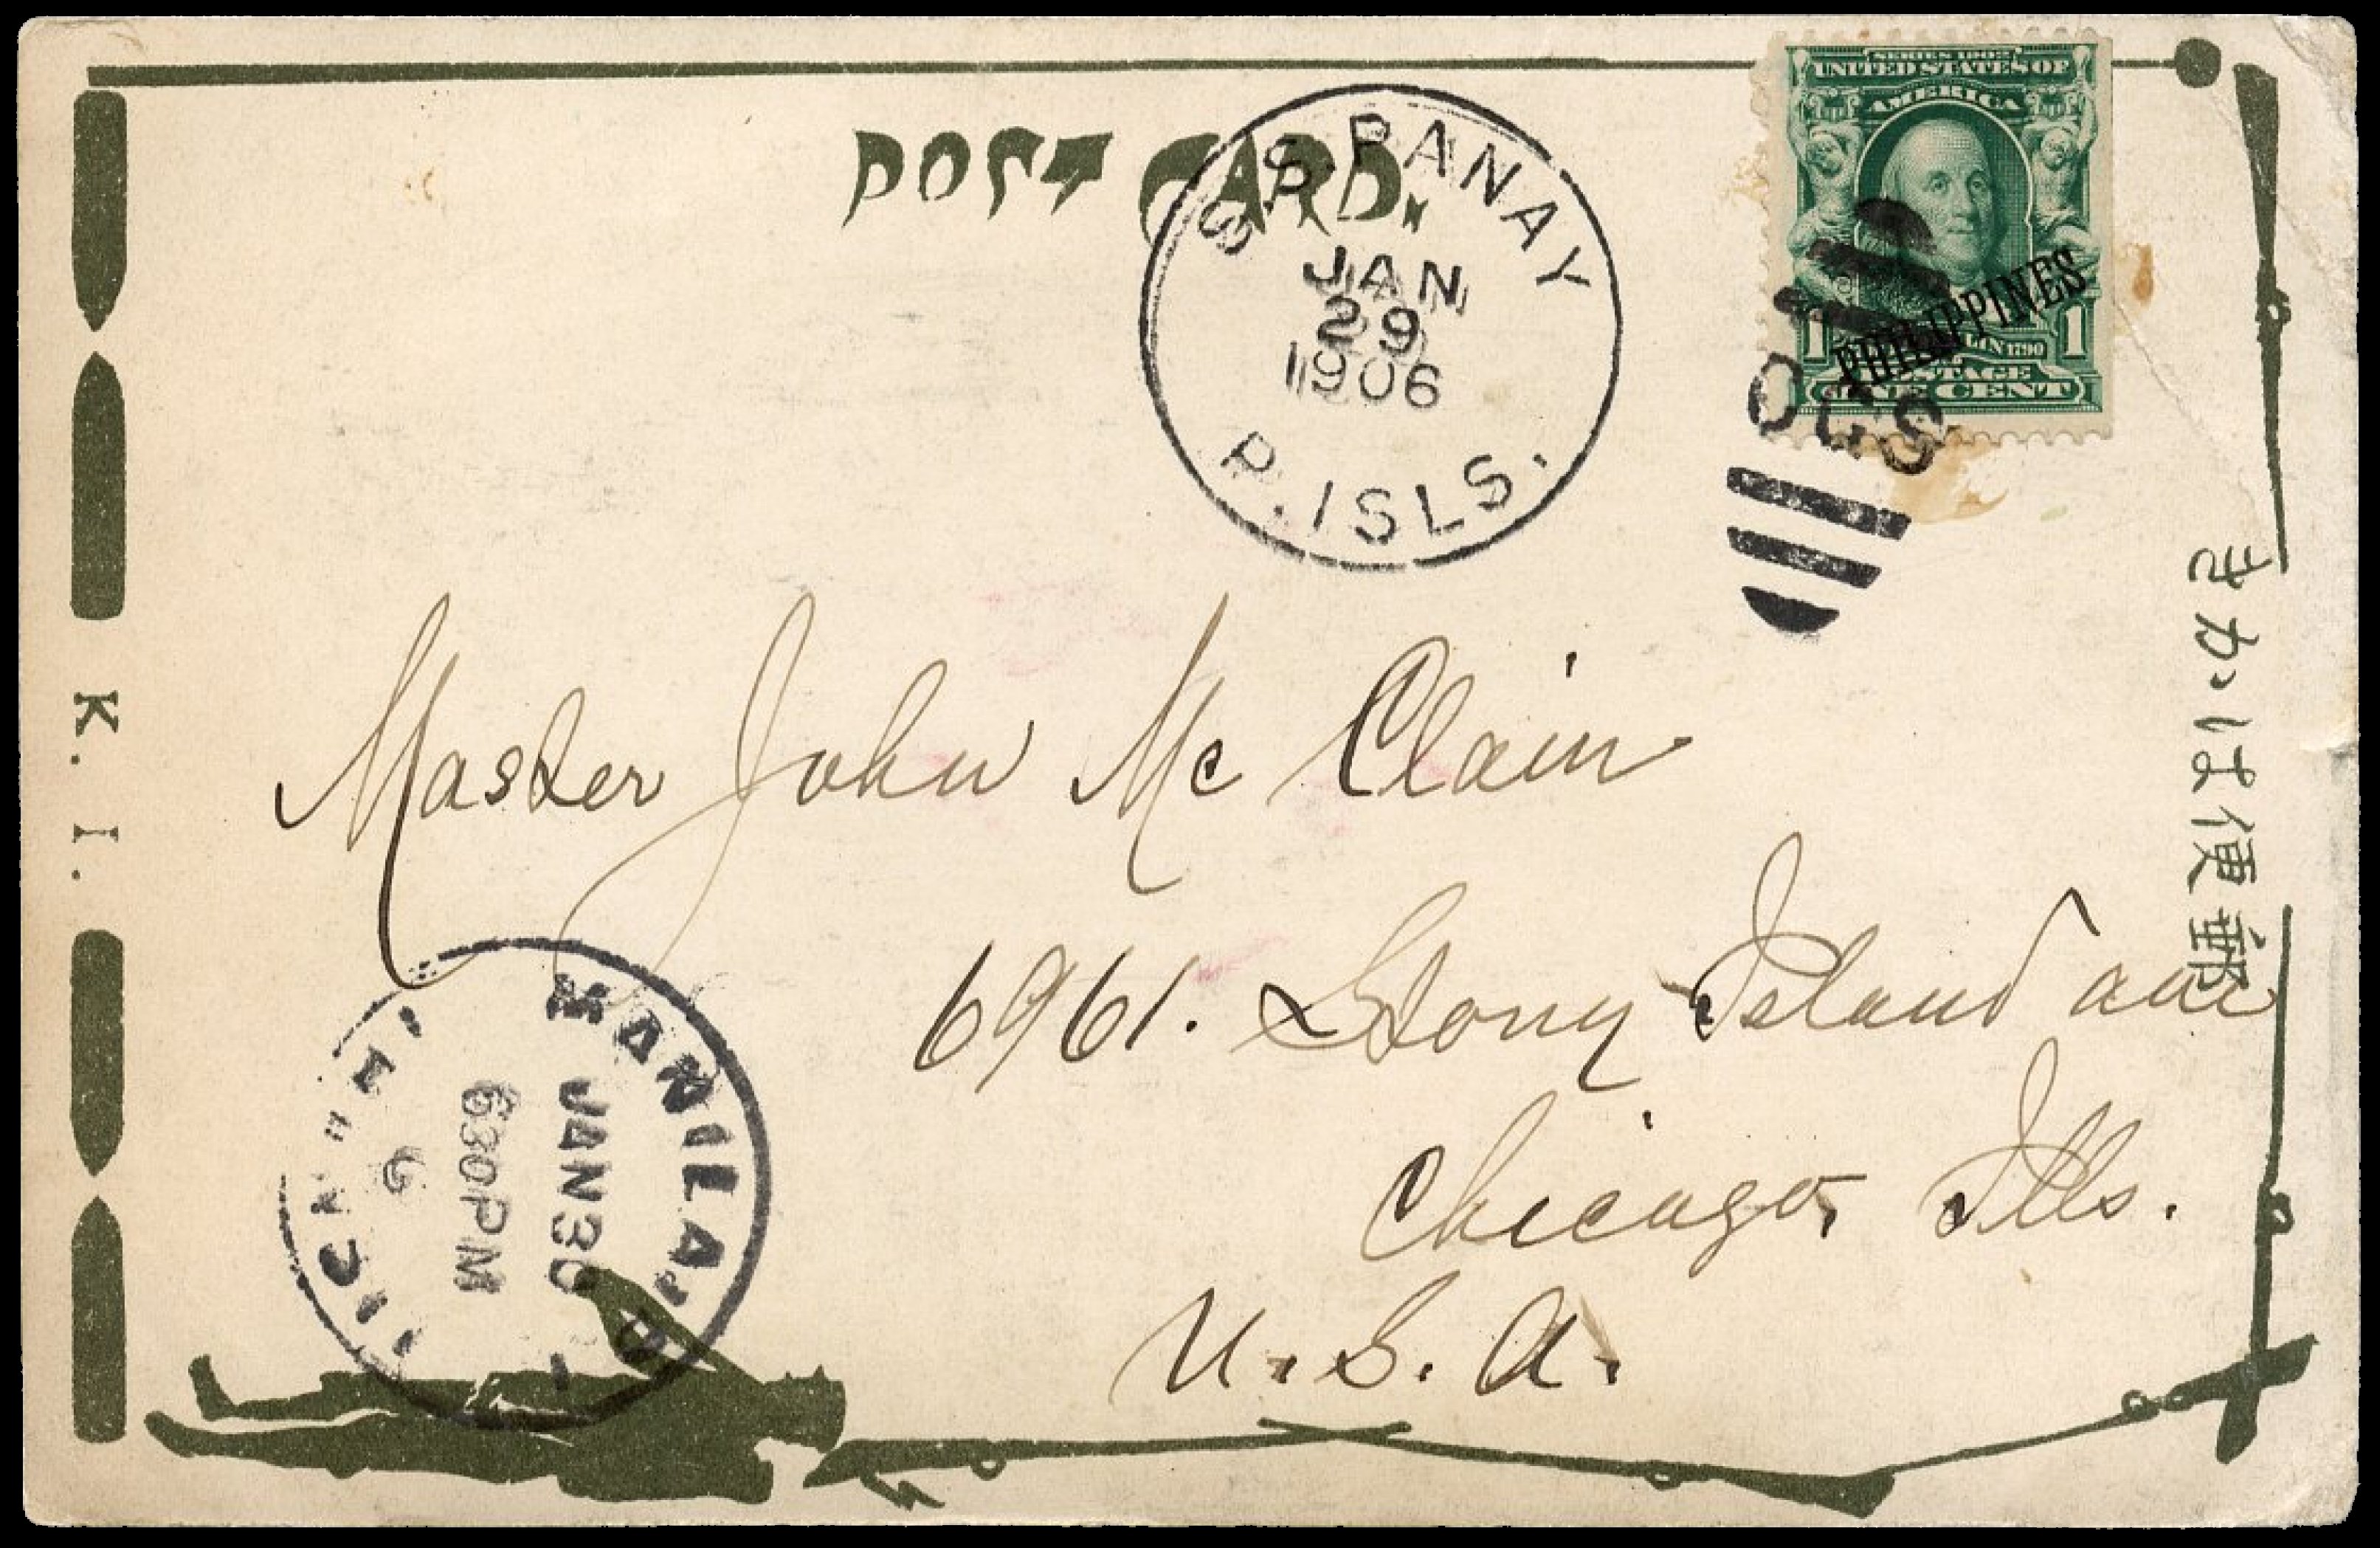 POST CARD.
S.S. PANAY
JAN
29
1906
P. ISLS.
SERIES 1902
UNITED STATES OF
AMERICA
PHILIPPINES
1 1
POSTAGE
ONE CENT
OGS
きかは便郵
K. I.
Master John Mc Clain
6961. Stony Island ave
Chicago, Ills.
U. S. A.
MANILA, P. I.
JAN 30
630PM
6